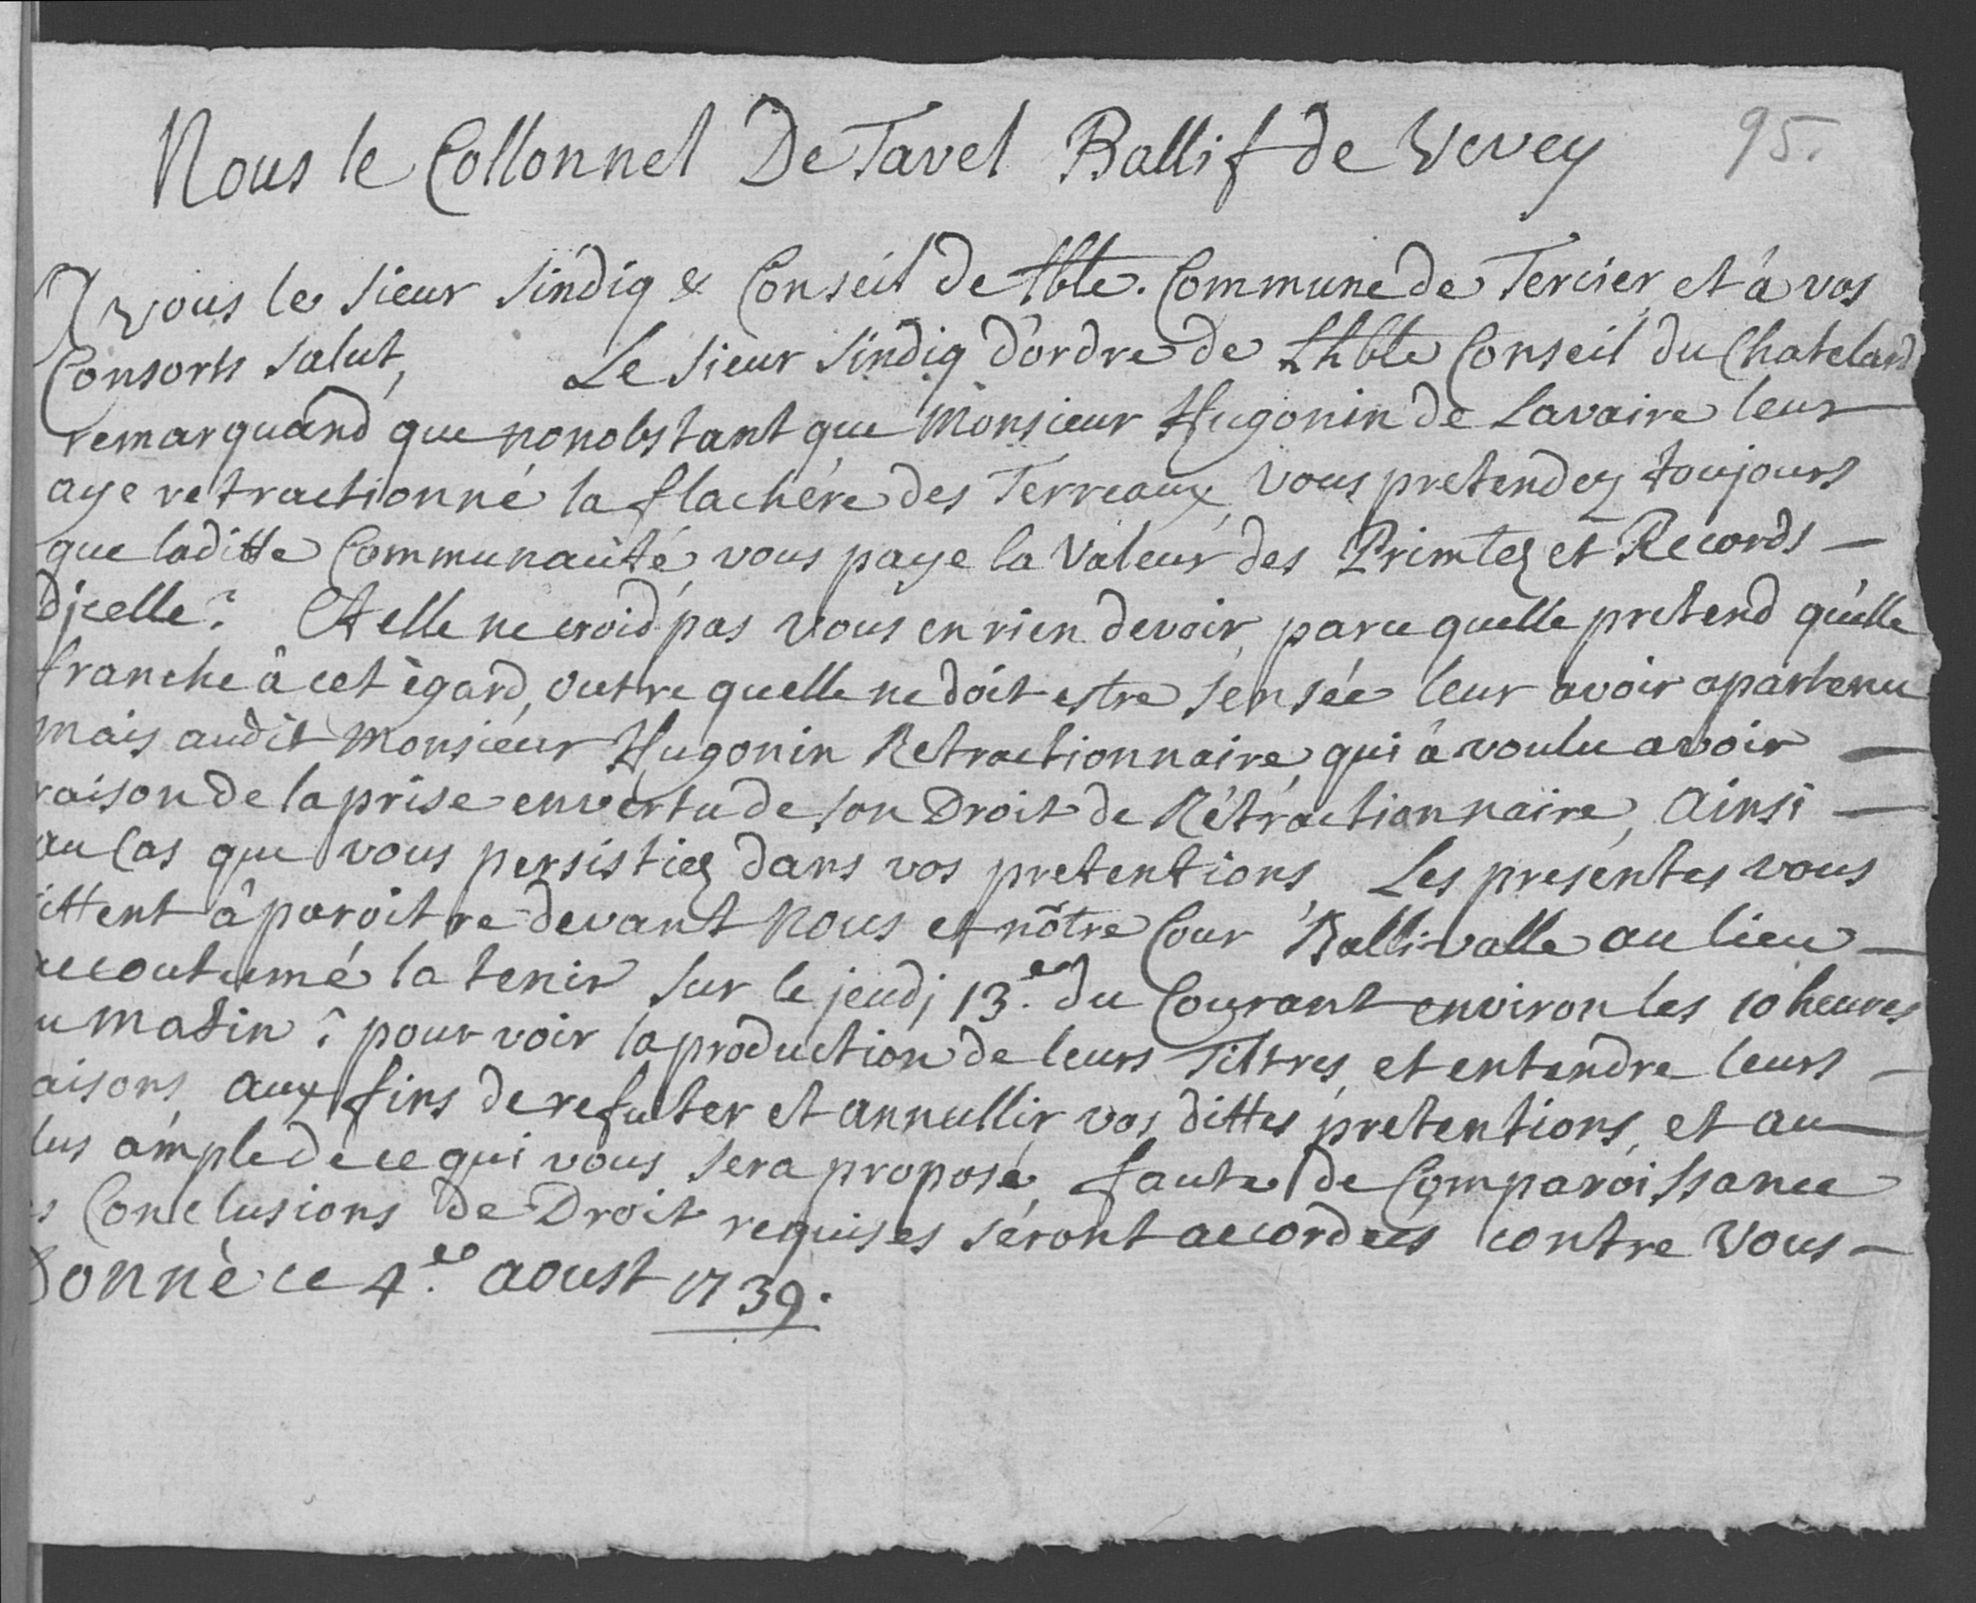 95.
Nous le Collonnel De Tavel Ballif de Vevey
A vous le sieur sindiq & Conseil de Hble. Commune de Tercier, et à vos
Consorts salut, Le sieur sindiq d'ordre de Lhble Conseil du Chatelard
remarquand que nonobstant que Monsieur Hugonin de Lavaire leur
aye retractionné la flachére des Terreaux, vous pretendez toujours
que laditte Communauté vous paye la valeur des Primtez et Records —
Djcelle? Et elle ne croid pas vous en rien devoir, parce quelle pretend qu'elle
franche à cet ègard, outre quelle ne doit estre sensée leur avoir apartenu
mais audit Monsieur Hugonin Retractionnaire, qui à voulu avoir —
raison de la prise en vertu de son Droit de Rétractionnaire, Ainsi —
au Cas que vous persistiez dans vos pretentions, Les presentes vous
cittent à paroitre devant Nous et nôtre Cour Ballivalle au lieu —
accoutumé la tenir sur le jeudj 13.e du Courant environ les 10 heures
u matin? pour voir la production de leurs Tiltres, et entendre leurs —
aisons, aux fins de refuter et annullir vos dittes pretentions, et au —
lus ample de ce qui vous sera proposé, faute de Comparoissance
s Conclusions de Droit requises séront accordées contre vous —
Donnè ce 4.e aoust 1739.